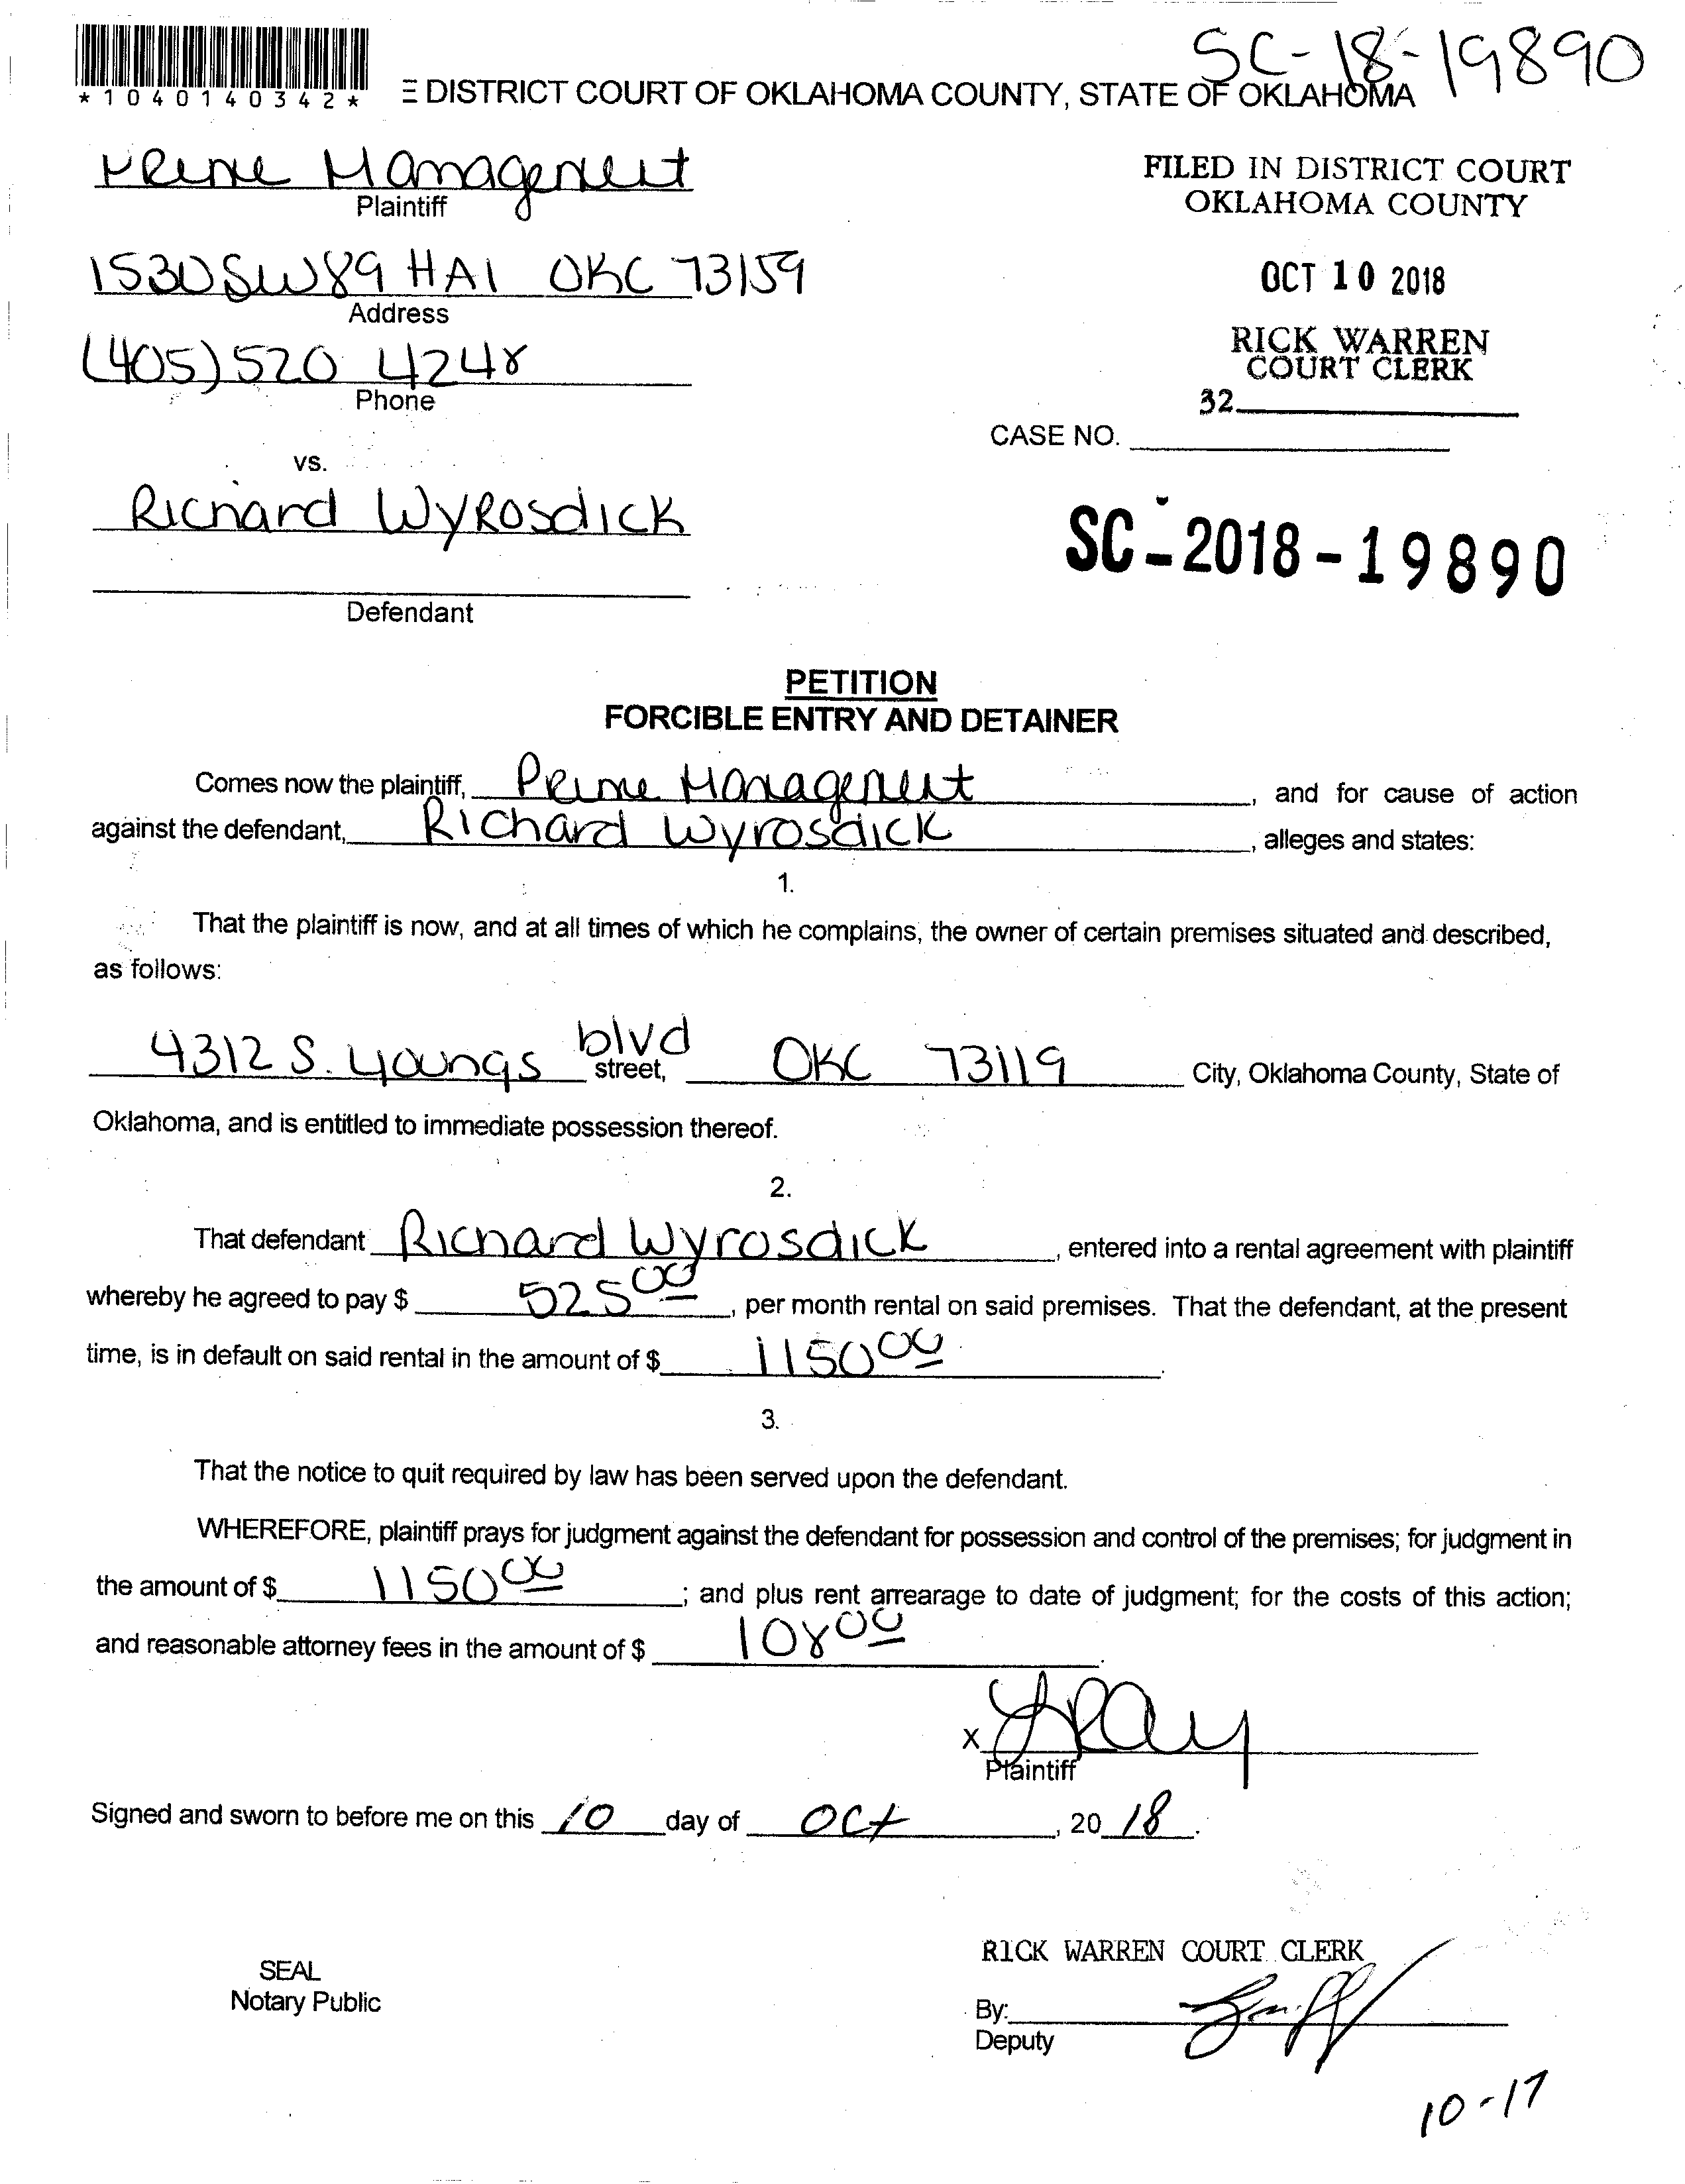 SC-18-19890
*1040140342*
E DISTRICT COURT OF OKLAHOMA COUNTY, STATE OF OKLAHOMA
Prime Management
Plaintiff
FILED IN DISTRICT COURT
OKLAHOMA COUNTY
1530 SW 89 HA1 OKC 73159
Address
OCT 10 2018
(405) 520 4248
Phone
RICK WARREN
COURT CLERK
32
CASE NO.
vs.
Richard Wyrosdick
SC-2018-19890
Defendant
PETITION
FORCIBLE ENTRY AND DETAINER
Comes now the plaintiff, Prime Management, and for cause of action
against the defendant, Richard Wyrosdick, alleges and states:
1.
That the plaintiff is now, and at all times of which he complains, the owner of certain premises situated and described,
as follows:
4312 S. Youngs blvd street, OKC 73119 City, Oklahoma County, State of
Oklahoma, and is entitled to immediate possession thereof.
2.
That defendant Richard Wyrosdick, entered into a rental agreement with plaintiff
whereby he agreed to pay $ 525 00, per month rental on said premises. That the defendant, at the present
time, is in default on said rental in the amount of $ 1150 00.
3.
That the notice to quit required by law has been served upon the defendant.
WHEREFORE, plaintiff prays for judgment against the defendant for possession and control of the premises; for judgment in
the amount of $ 1150 00; and plus rent arrearage to date of judgment; for the costs of this action;
and reasonable attorney fees in the amount of $ 108 00.
X
Plaintiff
Signed and sworn to before me on this 10 day of Oct, 20 18.
RICK WARREN COURT CLERK
SEAL
Notary Public
By:
Deputy
10-17